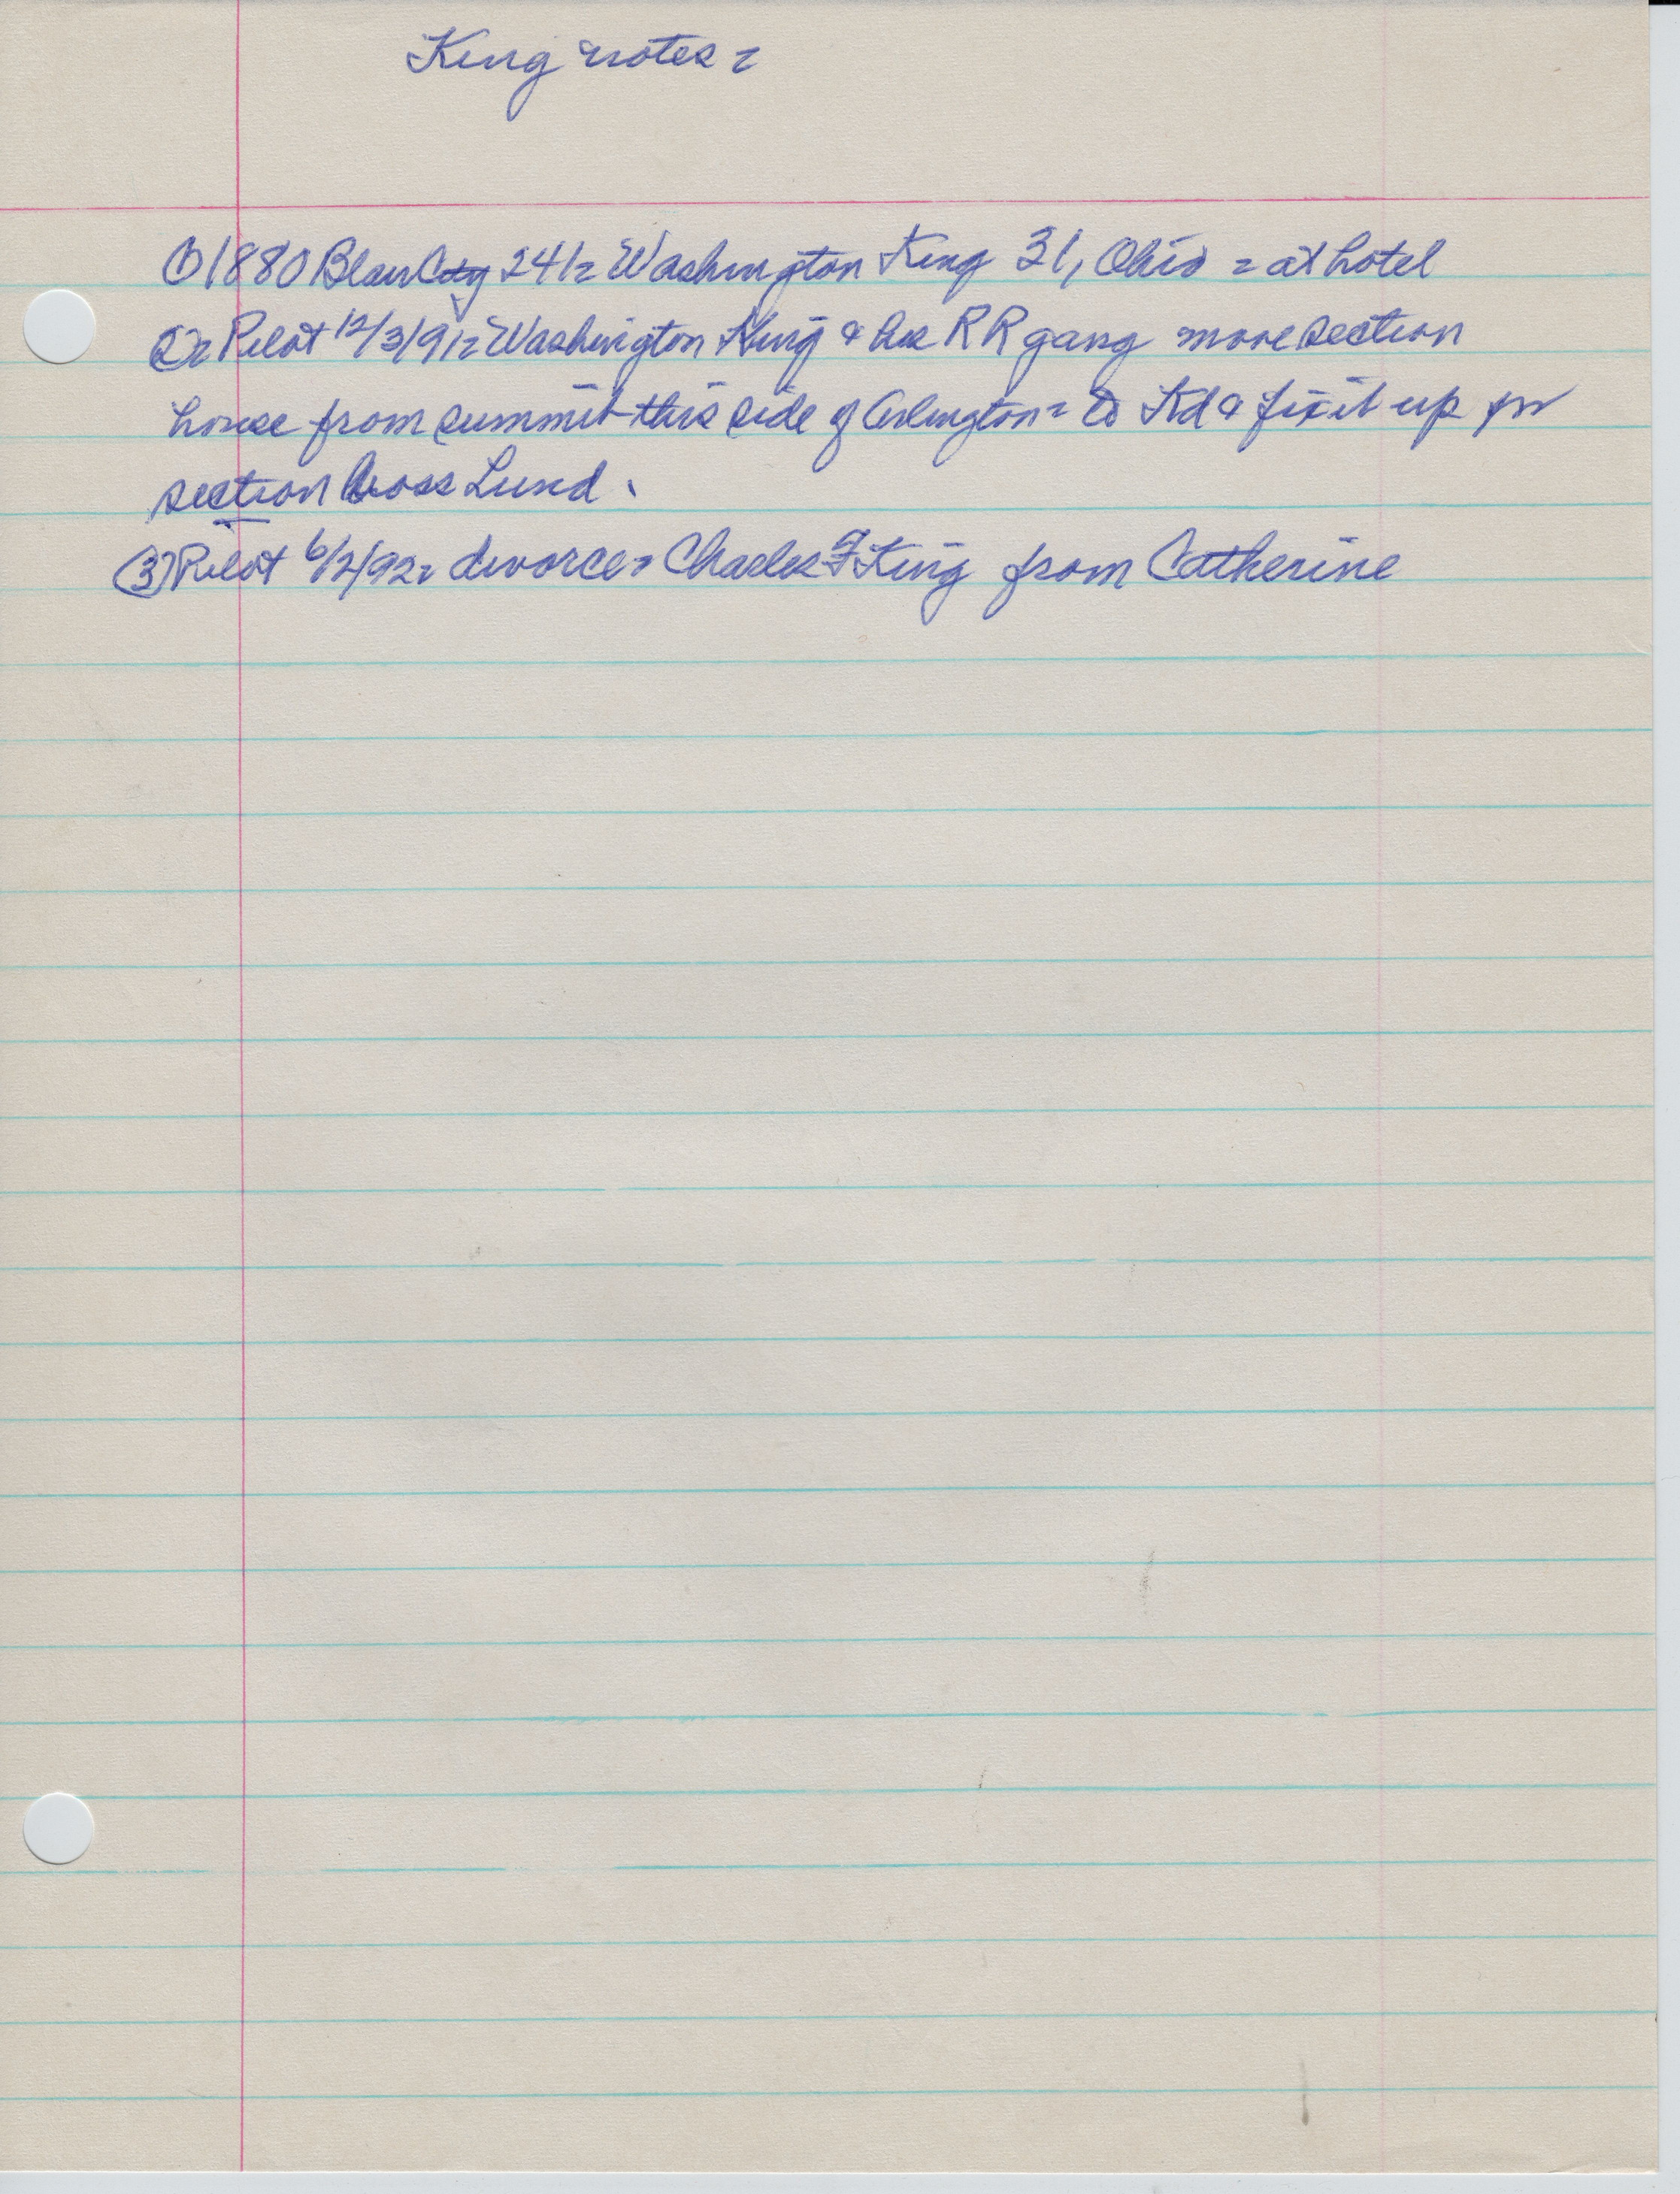 King notes =
① 1880 Blair City 241 = Washington King 31, Ohio = at hotel
② = Pilot 12/3/91 = Washington King & his RR gang move section
house from summit this side of Arlington = to Kd & fix it up for
section boss Lund.
③ Pilot 6/2/92 = divorce = Charles F King from Catherine